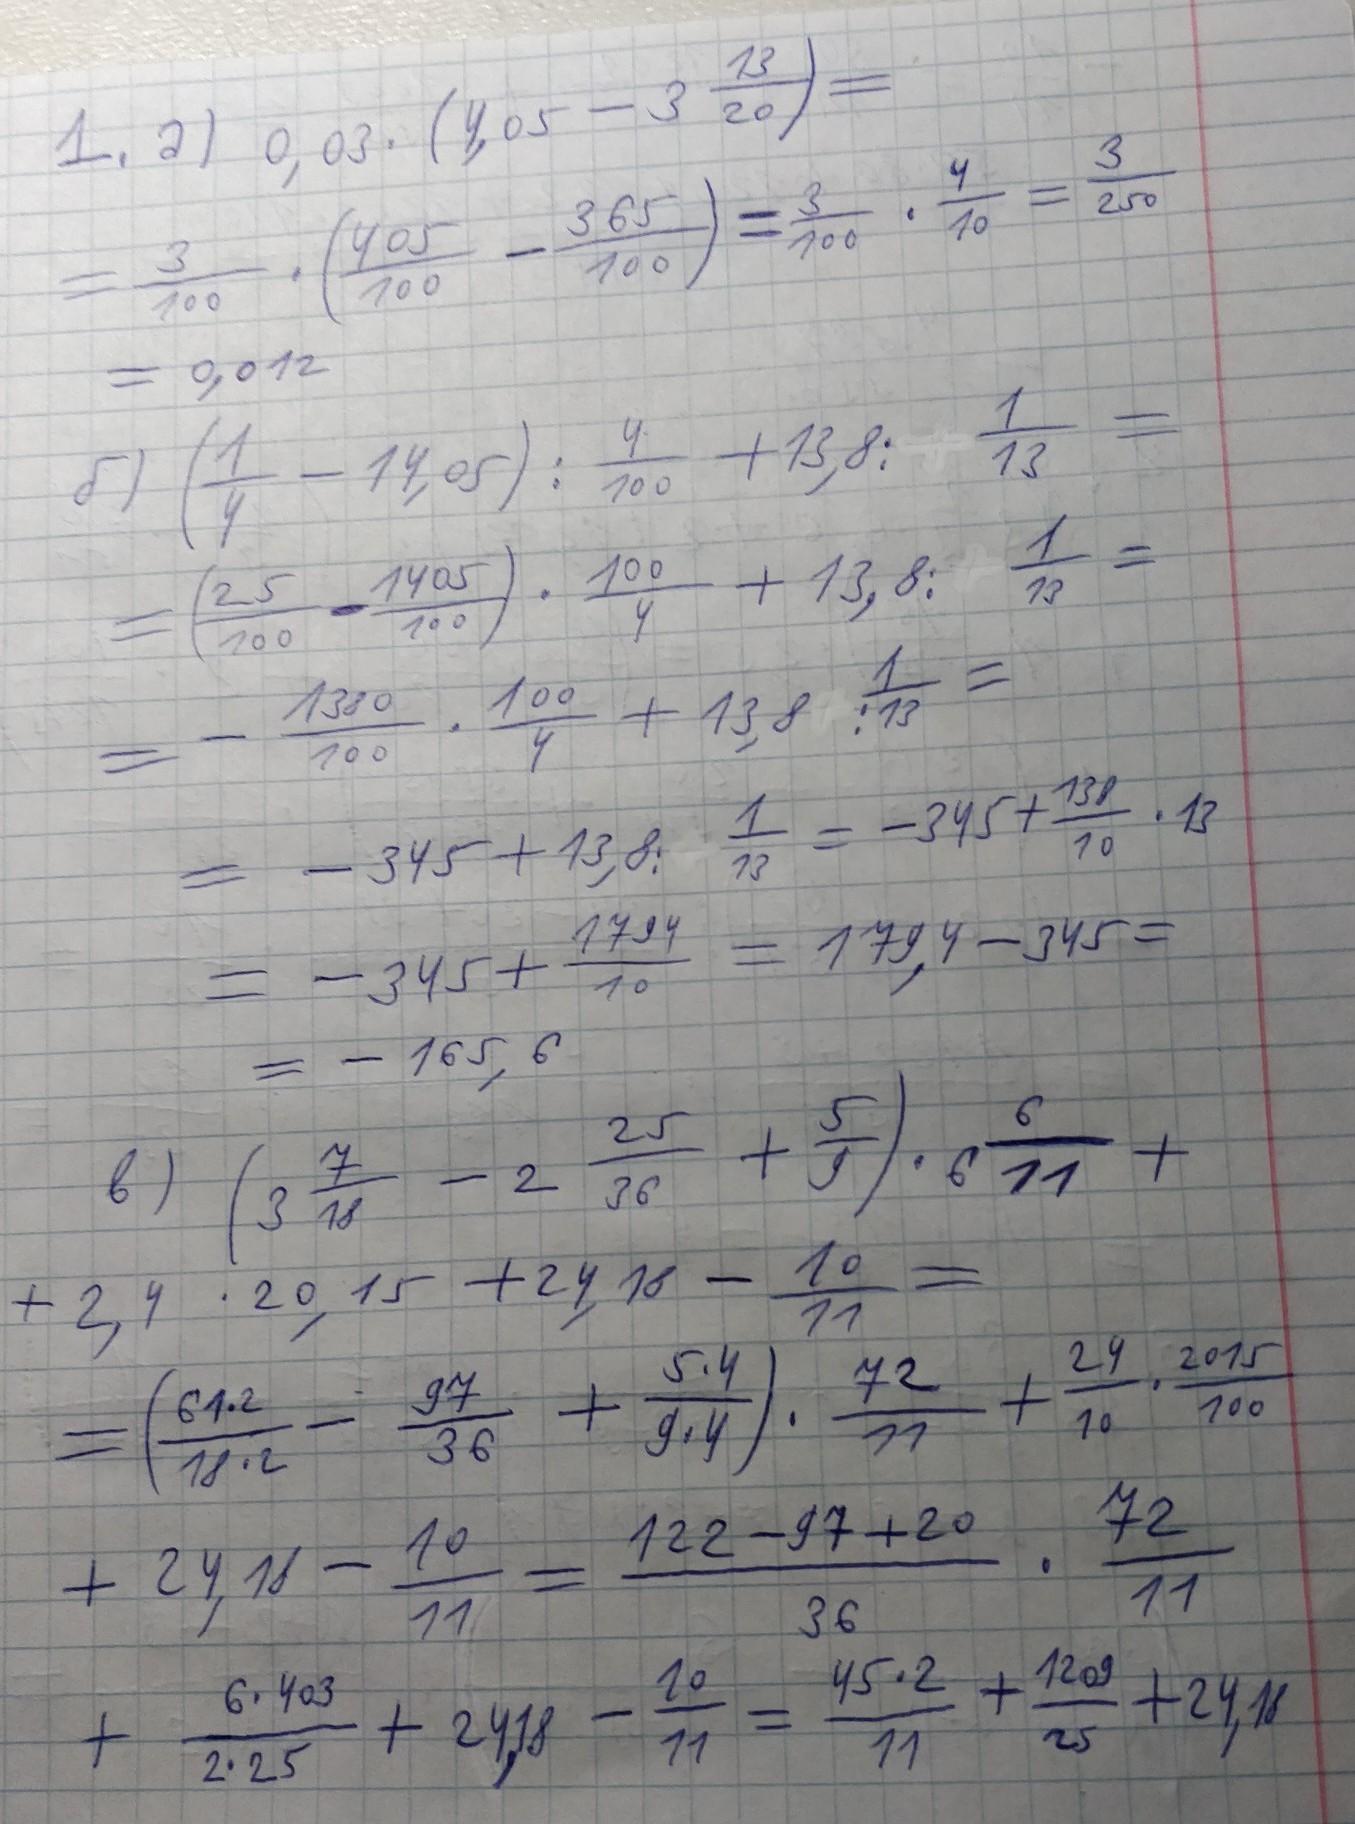 1. а) 0,03 · (4,05 − 3 13/20) =
= 3/100 · (405/100 − 365/100) = 3/100 · 4/10 = 3/250
= 0,012
б) (1/4 − 14,05) : 4/100 + 13,8 : 1/13 =
= (25/100 − 1405/100) · 100/4 + 13,8 : 1/13 =
= − 1380/100 · 100/4 + 13,8 : 1/13 =
= − 345 + 13,8 : 1/13 = −345 + 138/10 · 13
= − 345 + 1794/10 = 179,4 − 345 =
= − 165,6
в) (3 7/18 − 2 25/36 + 5/9) · 6 6/11 +
+ 2,4 · 20,15 + 24,18 − 10/11 =
= (61·2/18·2 − 97/36 + 5·4/9·4) · 72/11 + 24/10 · 2015/100
+ 24,18 − 10/11 = 122 − 97 + 20/36 · 72/11
+ 6·403/2·25 + 24,18 − 10/11 = 45·2/11 + 1209/25 + 24,18